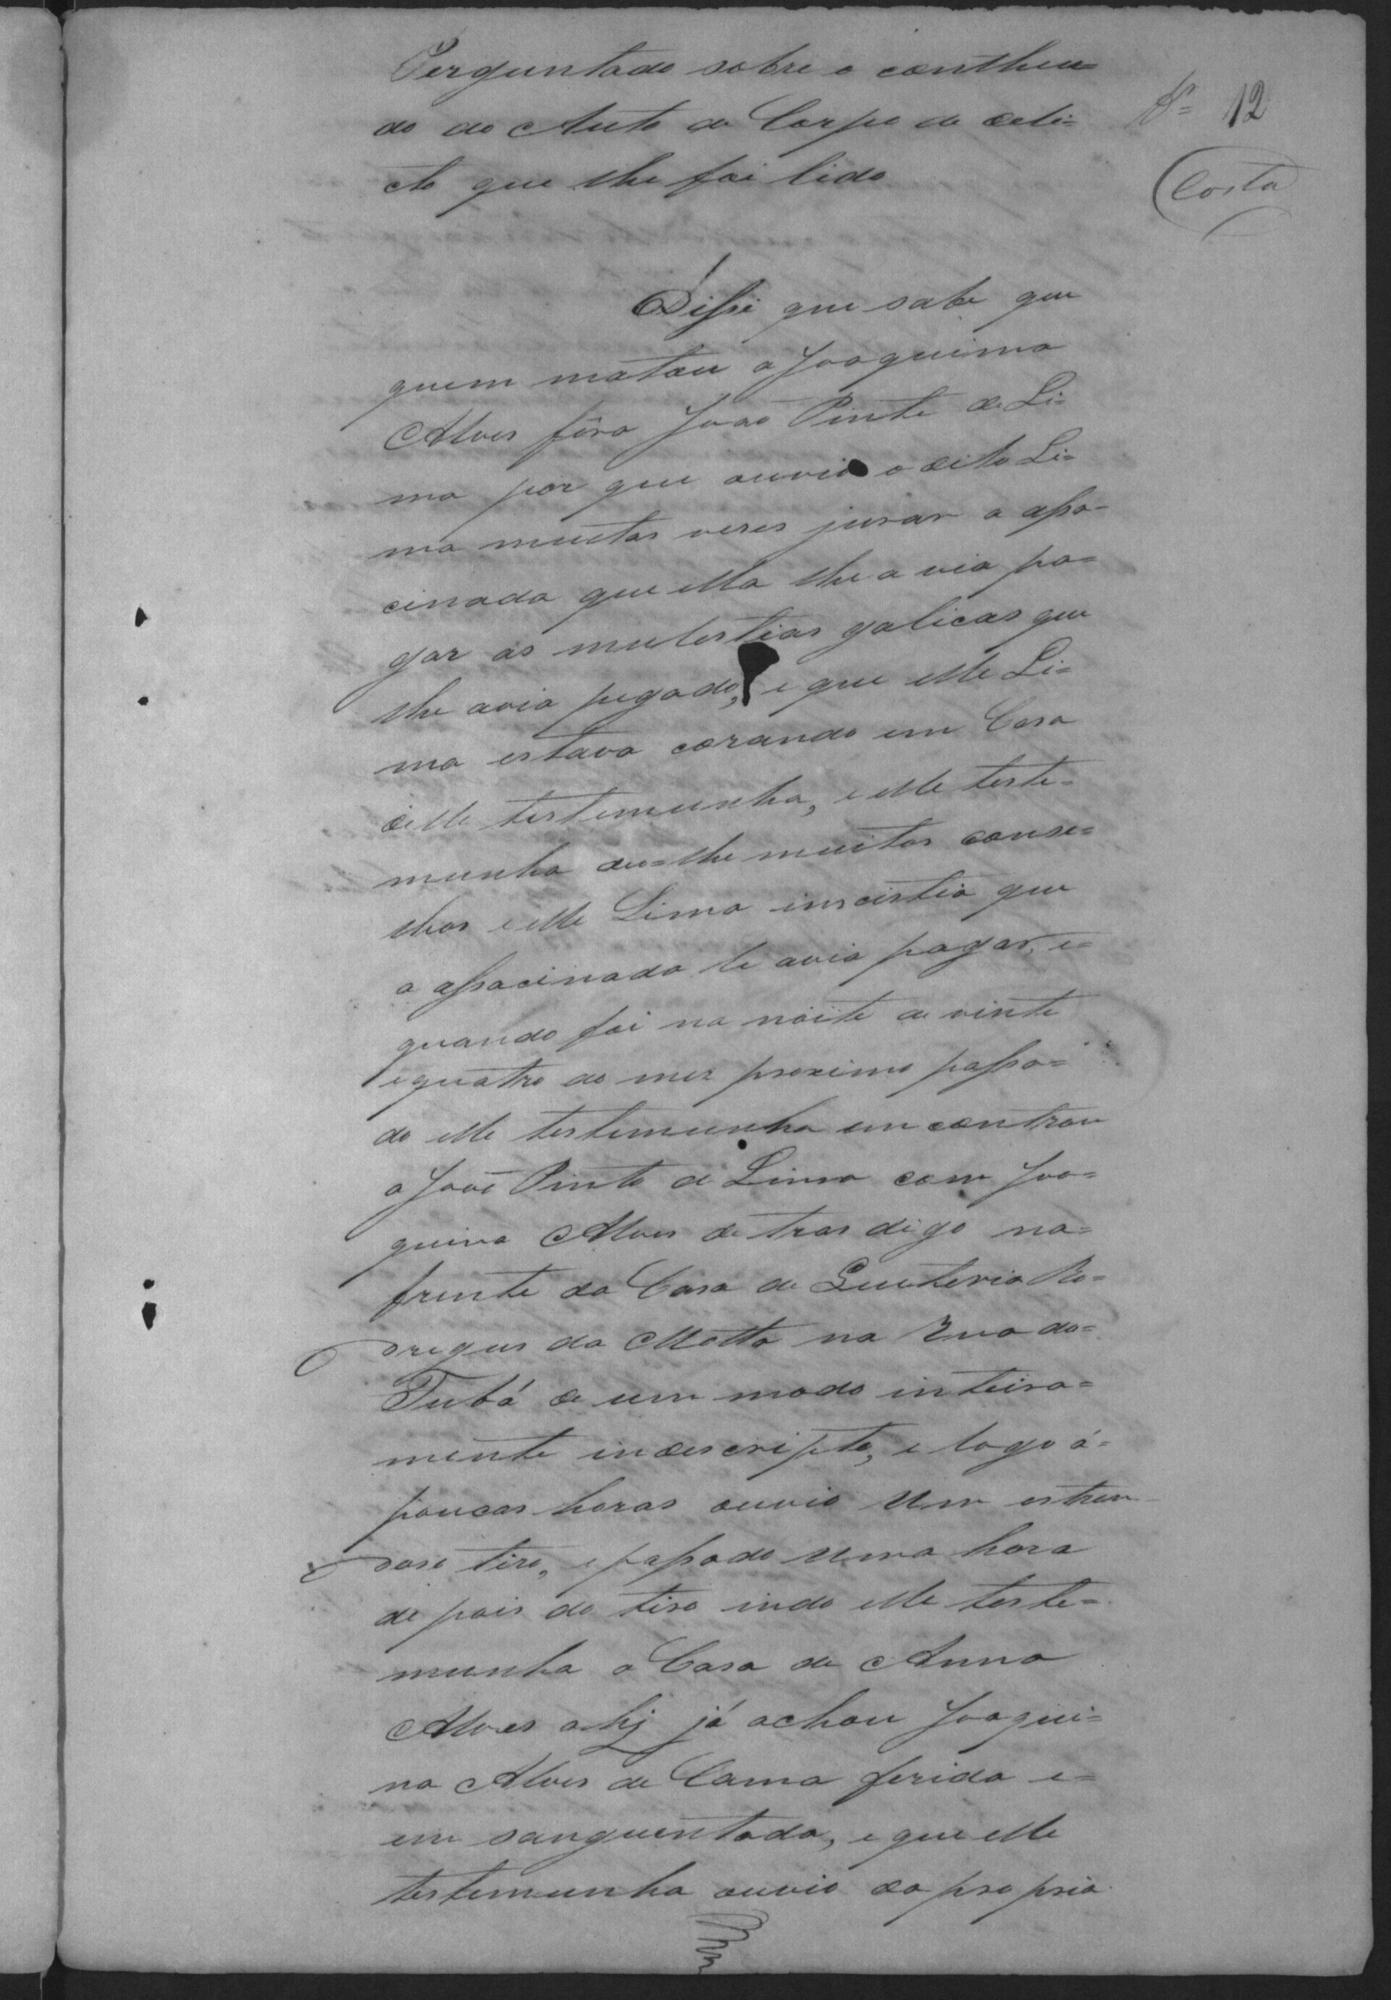 Perguntado sobre o contheu=
do do Auto de Corpo de deli=
cto que lhe foi lido
Nº 12
Costa
Disse que sabe que
quem matou a Joaquima
Alves fôra João Pinto de Li=
ma por que ouvio o dito Li=
ma muitas veses jurar a assa-
cinada que ella lhe a via pa=
gar as mulestias galicas que
lhe avia pegado, e que elle Li=
ma estava corando em Casa
delle testemunha, e elle teste-
munha deu=lhe muitos conse=
lhos e elle Lima inscistia que
a assacinada le avia pagar, e=
quando foi na nôite de vinte
e quatro do mez proximo passa=
do elle testemunha encontrou
a João Pinto de Lima com Joa=
quina Alves de tras digo na=
frente da Casa de Quiteria Ro=
drigues da Motta na Rua do=
Tubá de um modo inteira=
mente indescripto, e logo á=
poucas horas ouvio Um estron
doso tiro, e passado Uma hora
de pois do tiro indo elle teste=
munha a Casa de Anna
Alves ahy já achou Joaqui=
na Alves de Cama ferida e=
em sanguentada, e que elle
testemunha ouvio da propria